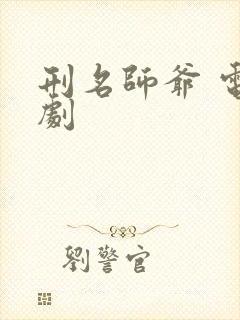 刑名師爺 電
劇
劉警官